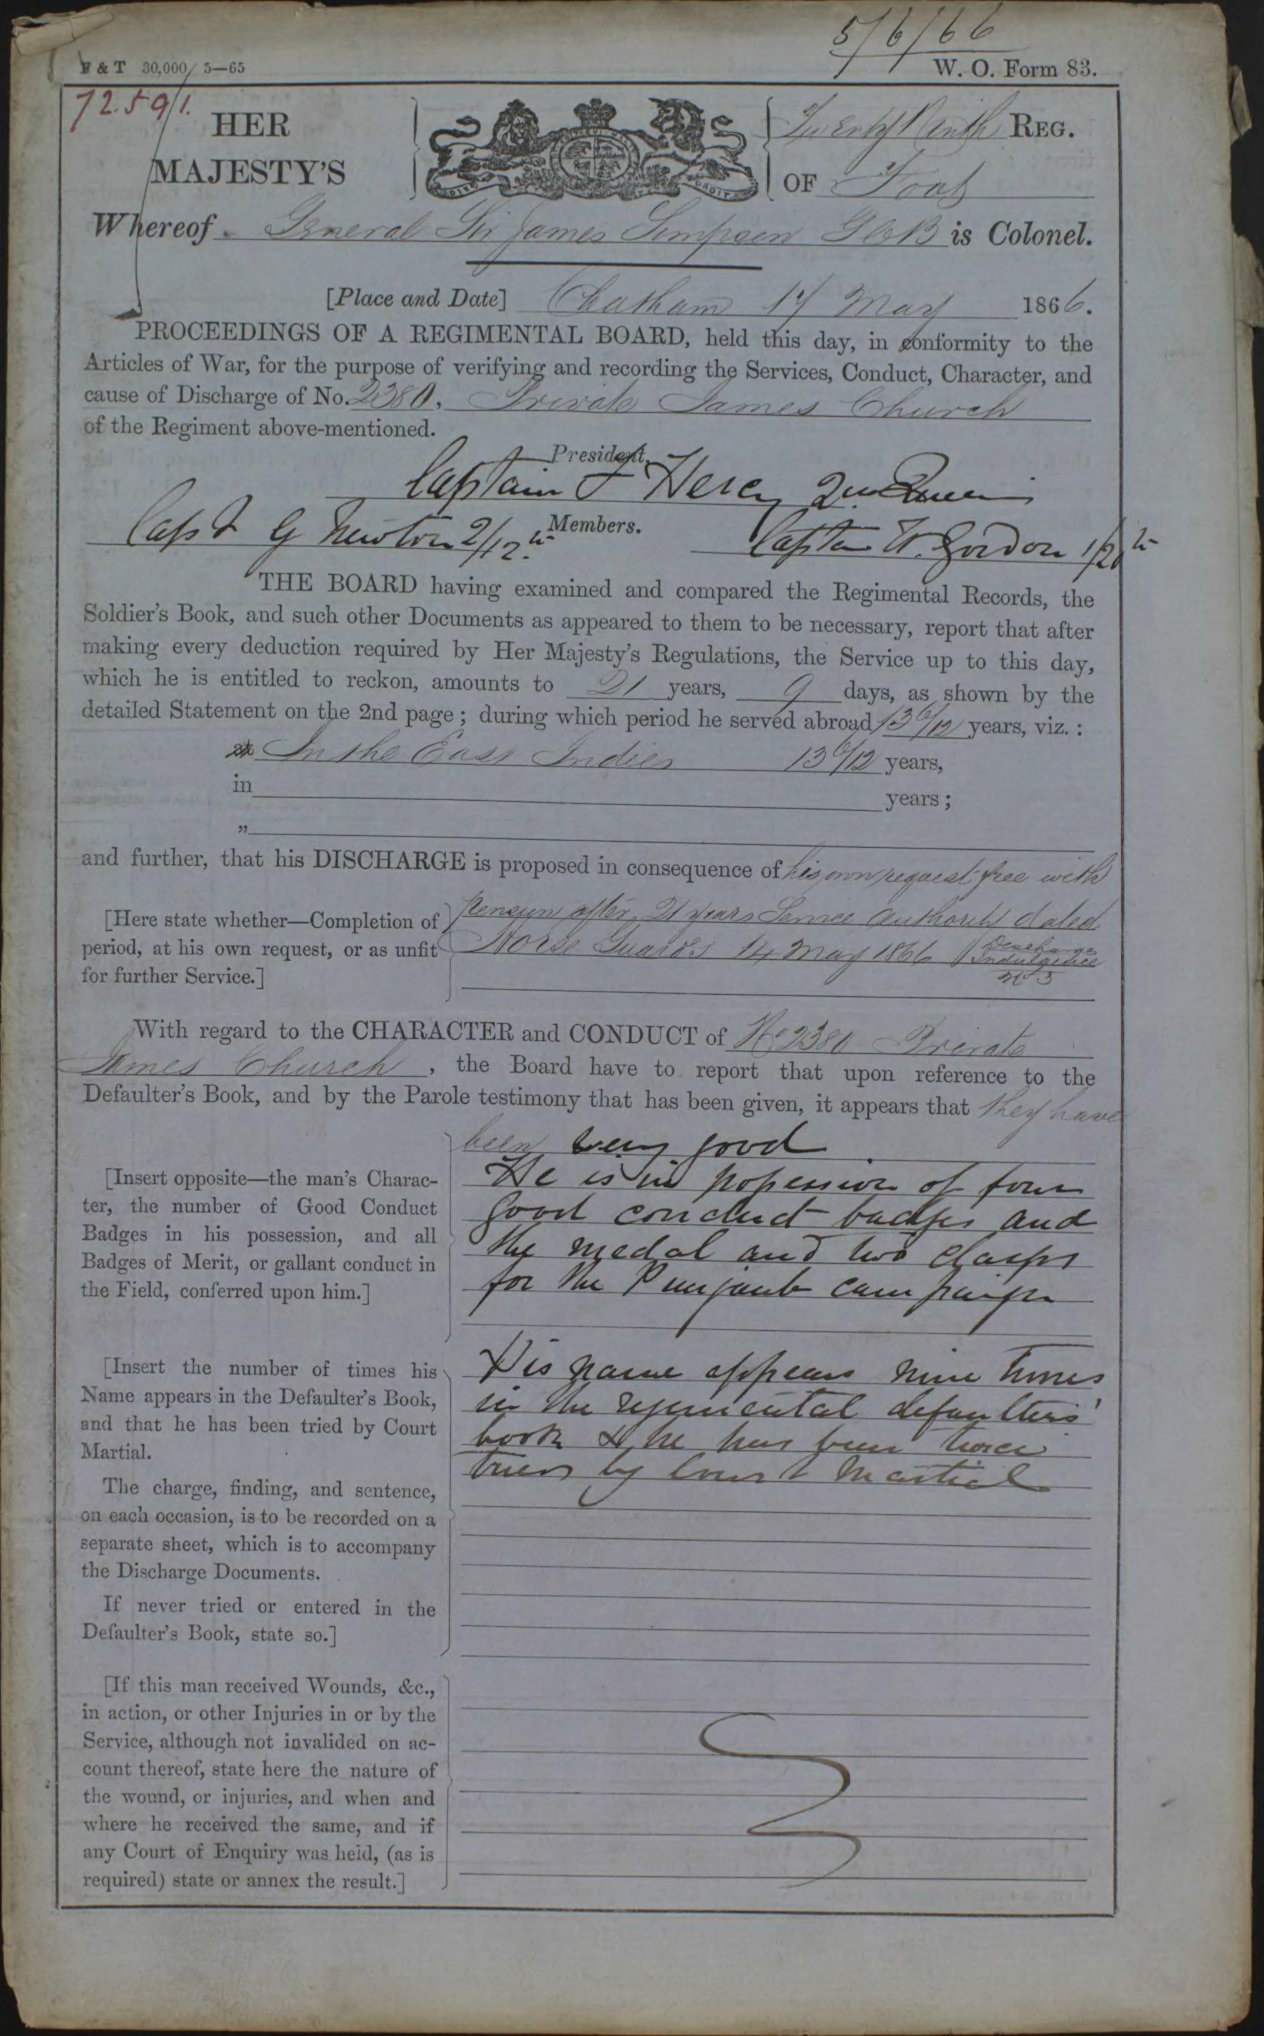 5/6/66
F & T 30,000/5—65
W. O. Form 83.
72.591.
HER
MAJESTY'S
Twenty Ninth REG.
OF Foot
Whereof General Sir James Simpson GCB is Colonel.
[Place and Date] Chatham 17 May 1866.
PROCEEDINGS OF A REGIMENTAL BOARD, held this day, in conformity to the
Articles of War, for the purpose of verifying and recording the Services, Conduct, Character, and
cause of Discharge of No. 2380, Private James Church
of the Regiment above-mentioned.
President.
Captain F Hercy 2nd Queens
Members.
Capt G Newton 2/12th
Captain W. Gordon 1/20th
THE BOARD having examined and compared the Regimental Records, the
Soldier's Book, and such other Documents as appeared to them to be necessary, report that after
making every deduction required by Her Majesty's Regulations, the Service up to this day,
which he is entitled to reckon, amounts to 21 years, 9 days, as shown by the
detailed Statement on the 2nd page; during which period he served abroad 13 6/12 years, viz.:
at In the East Indies 13 6/12 years,
in years;
„
and further, that his DISCHARGE is proposed in consequence of his own request free with
pension after 21 years Service authority dated
Horse Guards 14 May 1866 Discharge Indulgence No 3
[Here state whether—Completion of
period, at his own request, or as unfit
for further Service.]
With regard to the CHARACTER and CONDUCT of No 2380 Private
James Church, the Board have to report that upon reference to the
Defaulter's Book, and by the Parole testimony that has been given, it appears that they have
been very good
He is in possession of four
good conduct badges and
the medal and two clasps
for the Punjaub campaign
[Insert opposite—the man's Charac-
ter, the number of Good Conduct
Badges in his possession, and all
Badges of Merit, or gallant conduct in
the Field, conferred upon him.]
His name appears nine times
in the regimental defaulters'
book & he has been twice
tried by Court Martial
[Insert the number of times his
Name appears in the Defaulter's Book,
and that he has been tried by Court
Martial.
The charge, finding, and sentence,
on each occasion, is to be recorded on a
separate sheet, which is to accompany
the Discharge Documents.
If never tried or entered in the
Defaulter's Book, state so.]
[If this man received Wounds, &c.,
in action, or other Injuries in or by the
Service, although not invalided on ac-
count thereof, state here the nature of
the wound, or injuries, and when and
where he received the same, and if
any Court of Enquiry was held, (as is
required) state or annex the result.]